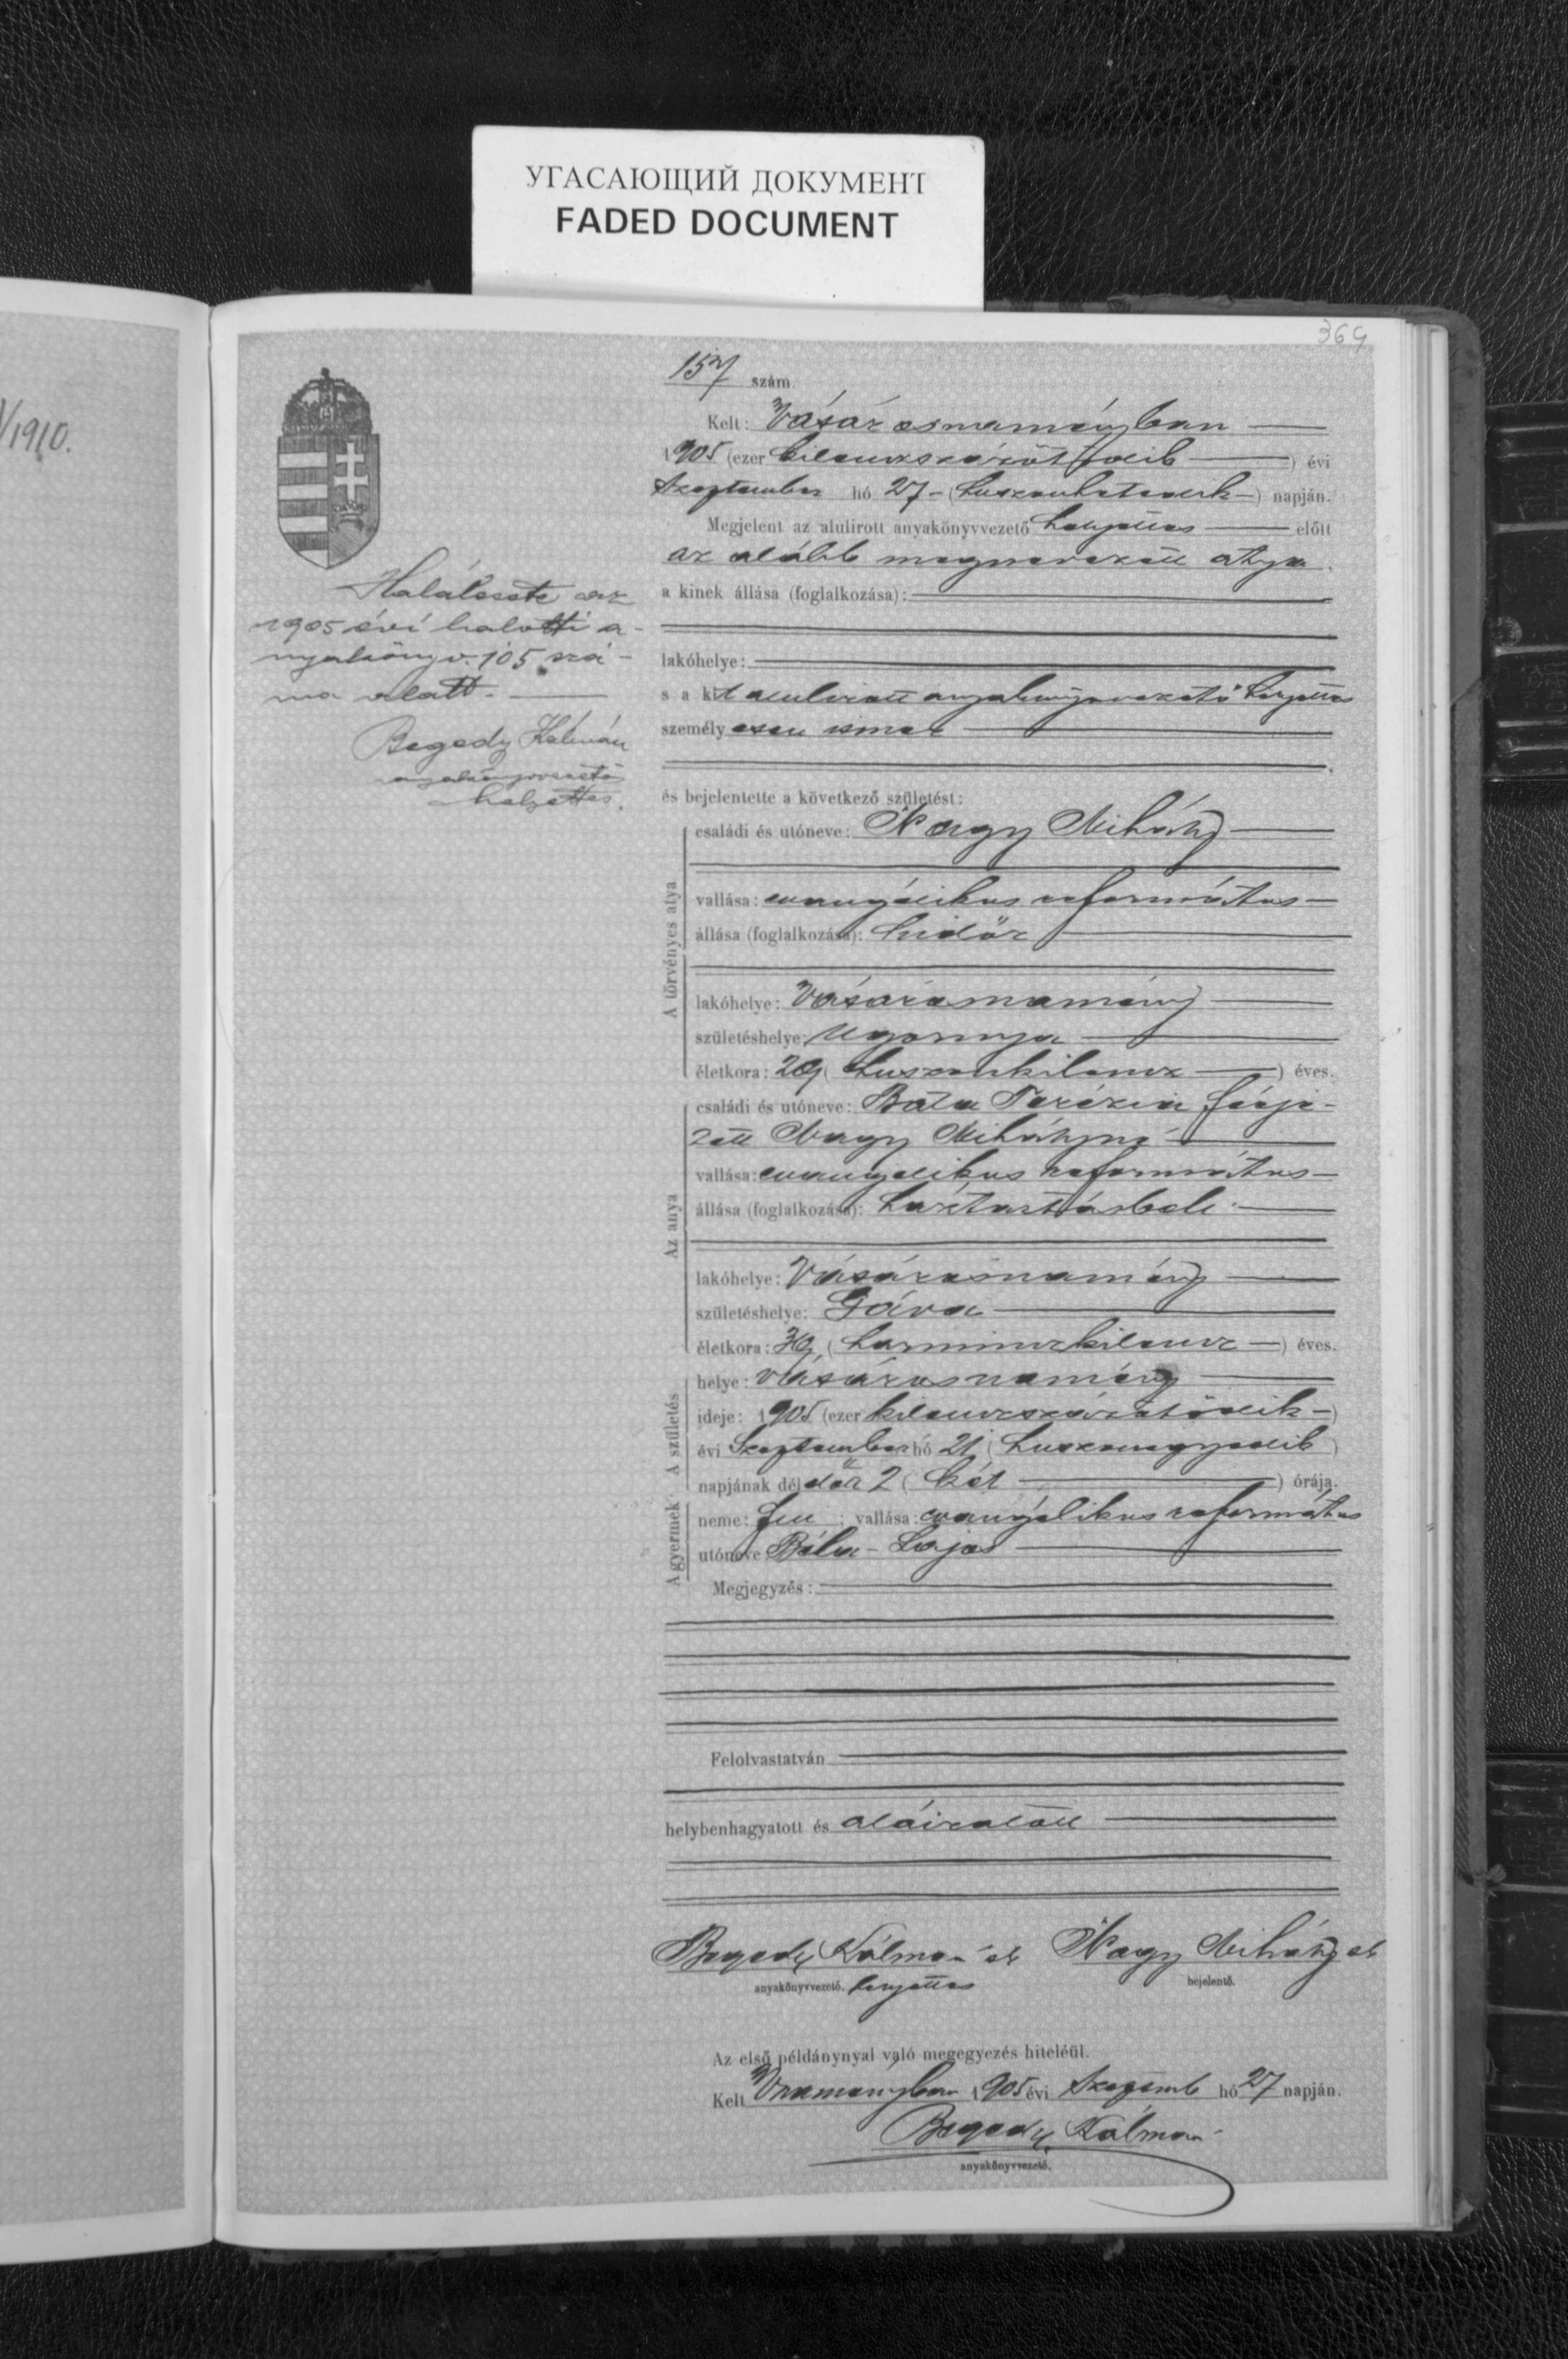 УГАСАЮЩИЙ ДОКУМЕНТ
FADED DOCUMENT
369
/1910.
157 szám.
Kelt: Vásárosnaményban
1905 (ezer kilenczszázötödik) évi
Szeptember hó 27 (huszonhetedik) napján.
Megjelent az alulirott anyakönyvvezető helyettes előtt
az alább megnevezett atya
a kinek állása (foglalkozása):
lakóhelye:
s a kit alulirott anyakönyvvezető helyettes
személyesen ismer
és bejelentette a következő születést:
A törvényes atya
családi és utóneve: Nagy Mihály
vallása: evangélikus református
állása (foglalkozása): hidőr
lakóhelye: Vásárosnamény
születéshelye: Ugornya
életkora: 29 (huszonkilencz) éves.
Az anya
családi és utóneve: Terézia férje-
zett Nagy Mihályné
vallása: evangelikus református
állása (foglalkozása): háztartásbeli
lakóhelye: Vásárosnamény
születéshelye: Gáva
életkora: 39 (harminczkilencz) éves.
A születés
helye: Vásárosnamény
ideje: 1905 (ezer kilenczszázötödik)
évi Szeptember hó 21 (huszonegyedik)
napjának délelőtt 2 (két) órája.
A gyermek
neme: fiu; vallása: evangélikus református
utóneve: Béla-Lajos
Megjegyzés:
Felolvastatván
helybenhagyatott és aláiratott
Begedy Kálmán sk Nagy Mihály sk
anyakönyvvezető. helyettes bejelentő.
Az első példánynyal való megegyezés hiteléül.
Kelt Vnaményban 1905 évi Szeptemb hó 27 napján.
Begedy Kálmán
anyakönyvvezető.
Halálesete az
1905 évi halotti a-
nyakönyv 105 szá-
ma alatt.
Begedy Kálmán
anyakönyvvezető
helyettes.